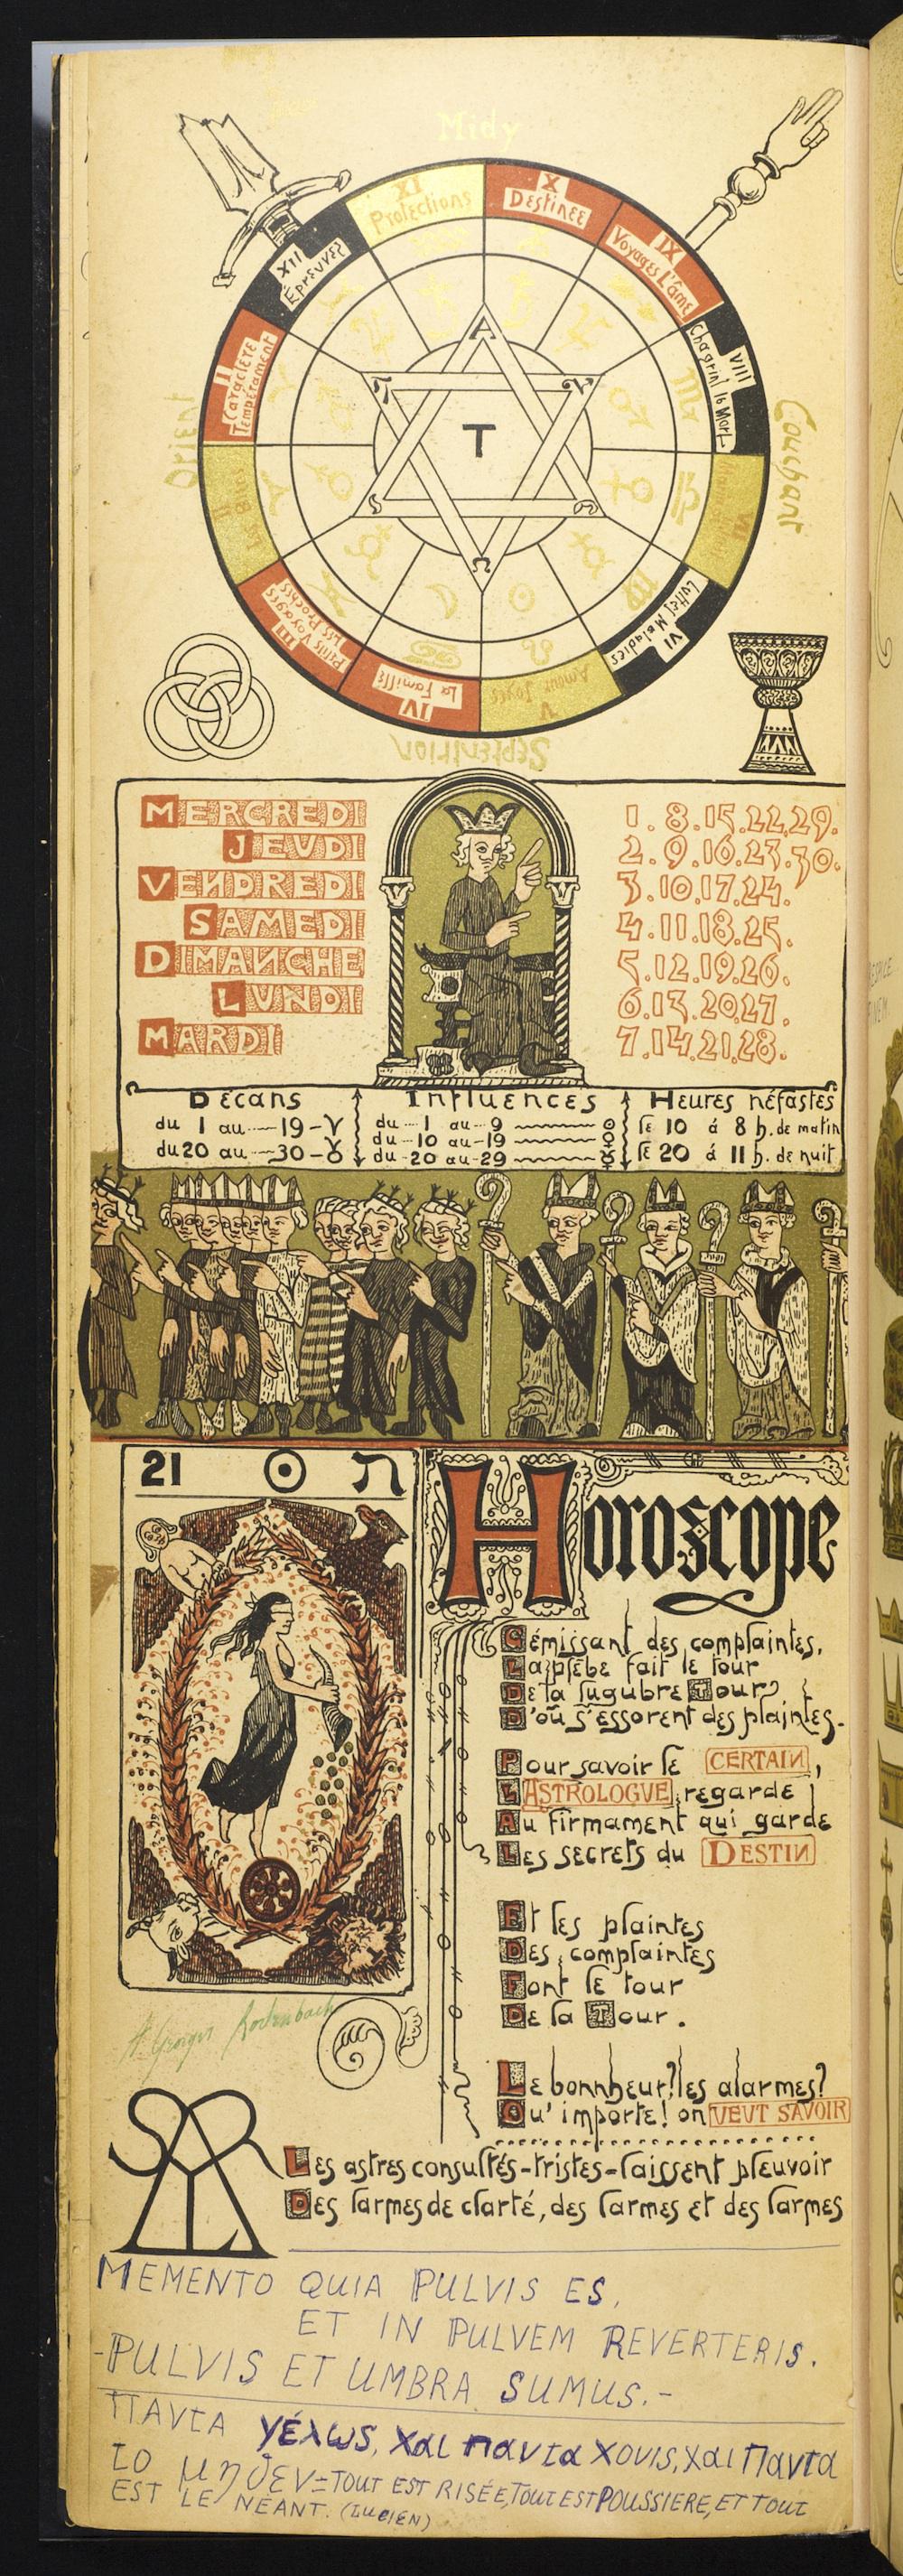 Midy
XI
Protections
X
Destinee
IX
Voyages L'âme
XII
Épreuves
VIII
Chagrin la Mort
Caractere
Temperament
Orient
Couchant
A
T
Ω
II
Les Biens
III
Petits Voyages
Les Proches
IV
La Famille
V
Amour Joyes
VI
Luttes Maladies
Septentrion
MERCREDI 1. 8. 15. 22. 29.
JEUDI 2. 9. 16. 23. 30.
VENDREDI 3. 10. 17. 24.
SAMEDI 4. 11. 18. 25.
DIMANCHE 5. 12. 19. 26.
LUNDI 6. 13. 20. 27.
MARDI 7. 14. 21. 28.
Décans
du 1 au 19 - ♈
du 20 au 30 - ♉
Influences
du 1 au 9 ☉
du 10 au 19 ♀
du 20 au 29 ☿
Heures néfastes
le 10 à 8 h. de matin
le 20 à 11 h. de nuit
21 ☉ ת
Horoscope
Gémissant des complaintes,
La plèbe fait le tour
De la lugubre Tour
D'où s'essorent des plaintes.
Pour savoir le CERTAIN,
L'ASTROLOGUE regarde
Au firmament qui garde
Les secrets du DESTIN
Et les plaintes
Des complaintes
Font le tour
De la Tour.
Le bonnheur? les alarmes?
Qu'importe! on VEUT SAVOIR
Les astres consultés - tristes - laissent pleuvoir
Des larmes de clarté, des larmes et des larmes
A Georges Rodenbach
MEMENTO QUIA PULVIS ES,
ET IN PULVEM REVERTERIS.
- PULVIS ET UMBRA SUMUS. -
Παντα γέλως, χαι παντα χονις, χαι Παντα
το μηδεν = TOUT EST RISÉE, TOUT EST POUSSIERE, ET TOUT
EST LE NÉANT. (LUCIEN)